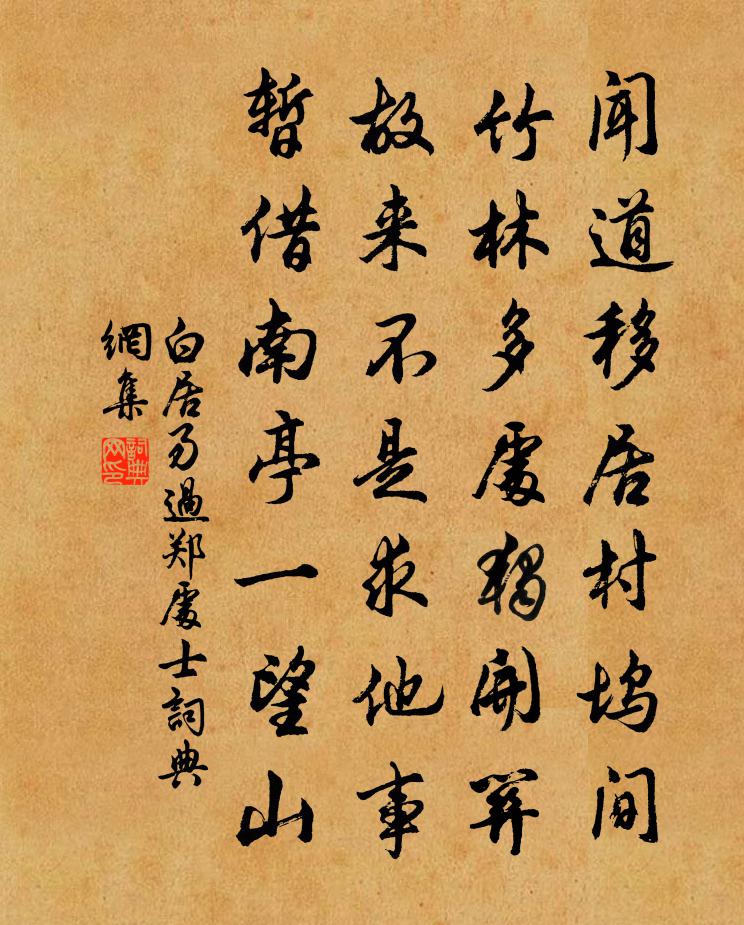 闻道移居村坞间
竹林多處獨开関
故来不是求他事
暂借南亭一望山
白居易過郑處士詞典
網集
詞典
网印